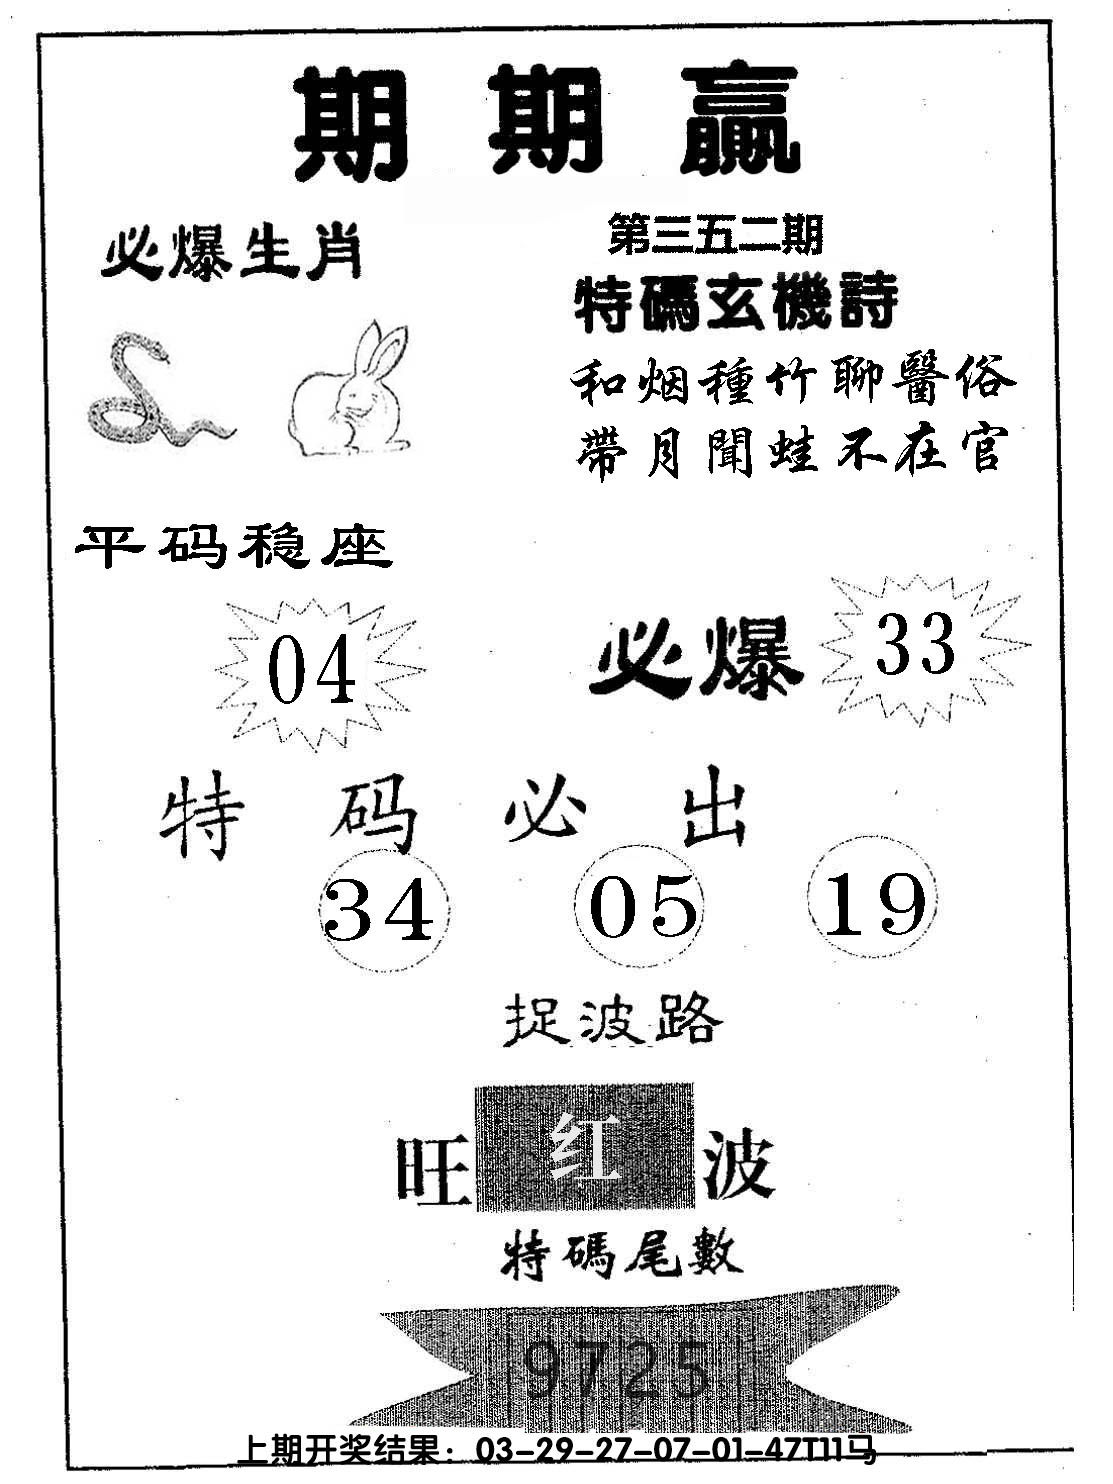 期期贏
第三五二期
必爆生肖
特碼玄機詩
和烟種竹聊醫俗
帶月聞蛙不在官
平码稳座
04
必爆
33
特码必出
34 05 19
捉波路
旺红波
特碼尾數
9725
上期开奖结果：03-29-27-07-01-47T11马